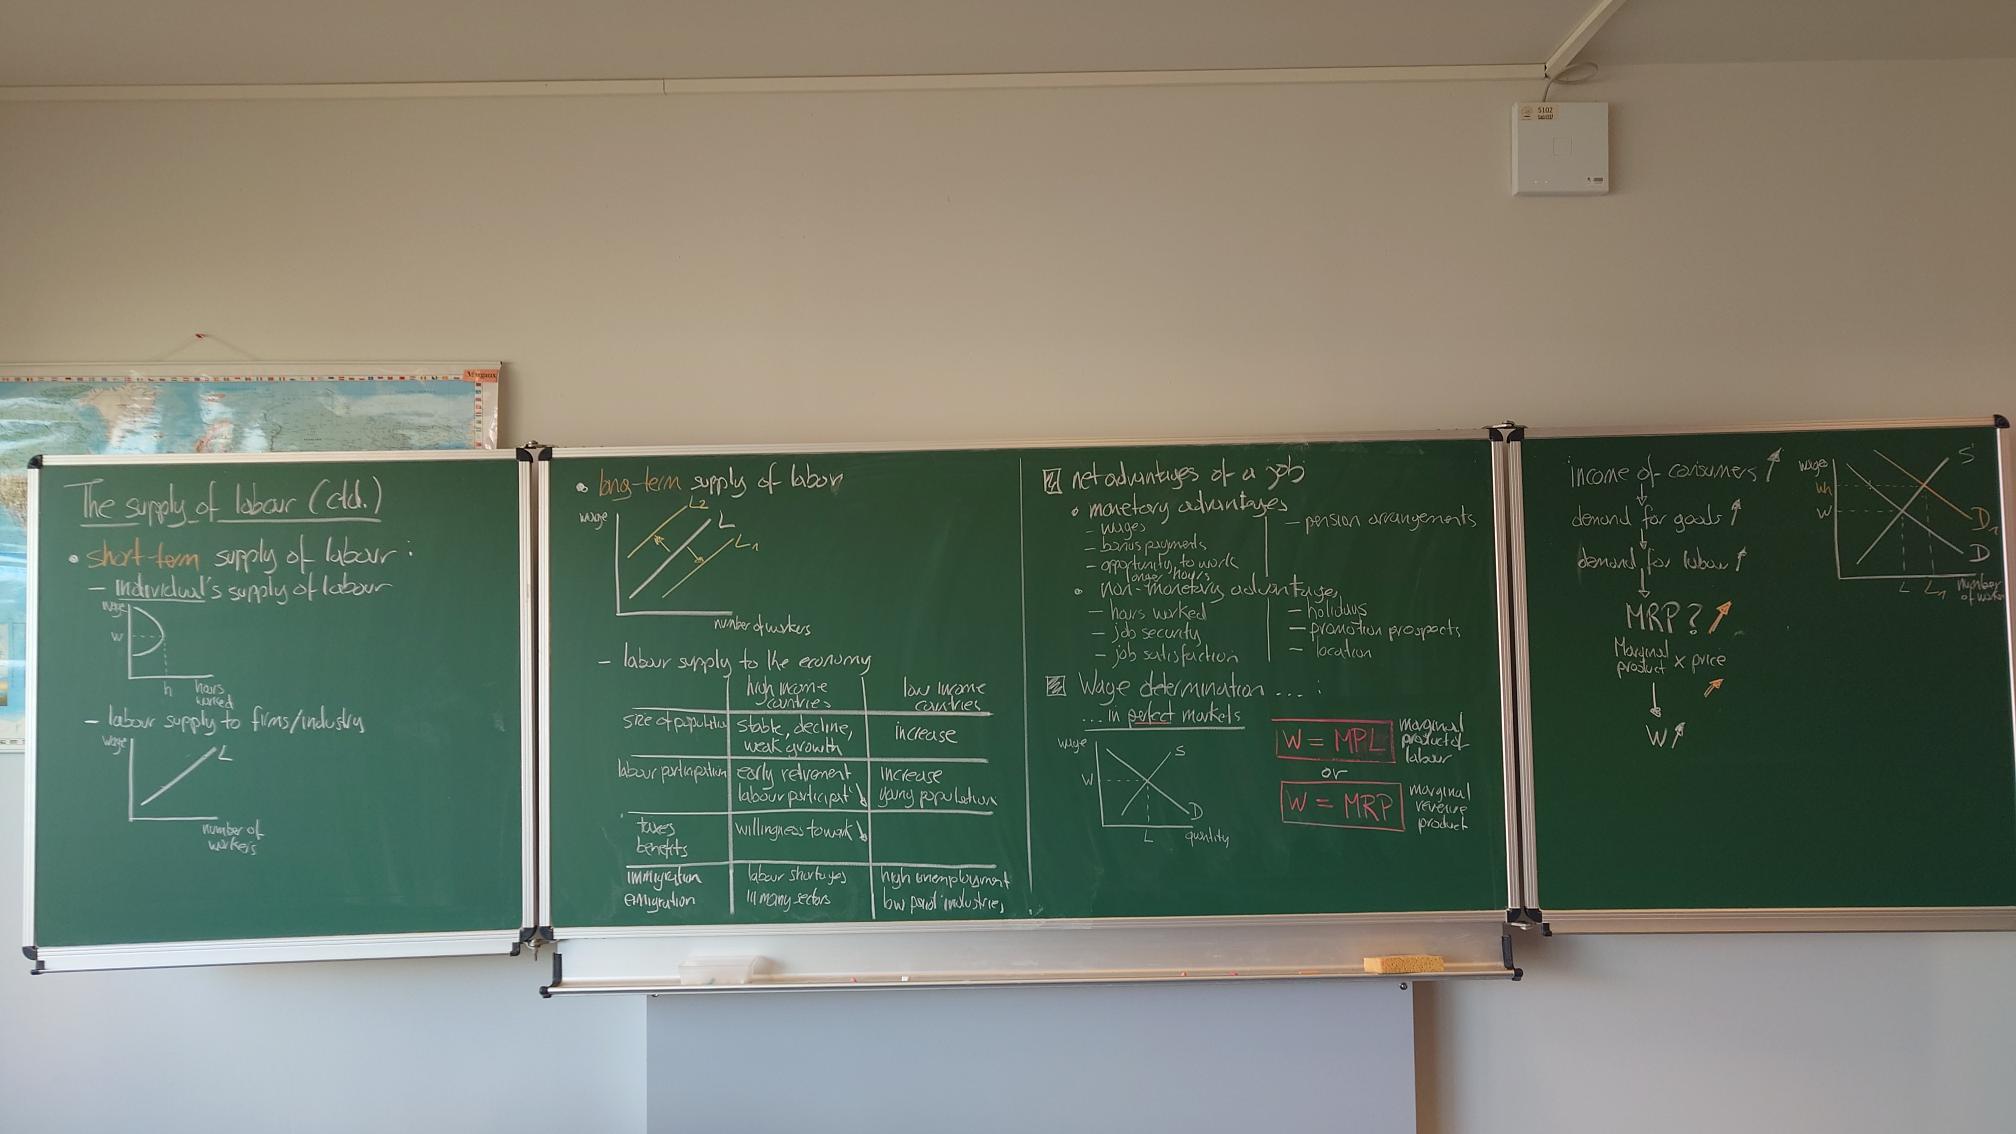 The supply of labour (ctd.)
• short-term supply of labour:
– individual's supply of labour
wage
W
h
hours
worked
– labour supply to firms/industry
wage
L
number of
workers
• long-term supply of labour
wage
L2
L
L1
number of workers
– labour supply to the economy
high income
countries
low income
countries
size of population
stable, decline,
weak growth
increase
labour participation
early retirement
labour participat° ↘
increase
young population
taxes
benefits
willingness to work ↘
immigration
emigration
labour shortages
in many sectors
high unemployment
low paid industries
net advantages of a job
• monetary advantages
– wages
– bonus payments
– opportunity to work
longer hours
– pension arrangements
• non-monetary advantages
– hours worked
– job security
– job satisfaction
– holidays
– promotion prospects
– location
Wage determination ....:
... in perfect markets
wage
S
W
D
L
quantity
W = MPL
marginal
product of
labour
or
W = MRP
marginal
revenue
product
income of consumers ↗
↓
demand for goods ↗
↓
demand for labour ↗
↓
MRP? ↗
Marginal
product x price
↗
↓
W ↗
wage
S
W1
W
D1
D
L
L1
number
of workers
Margaux
5102